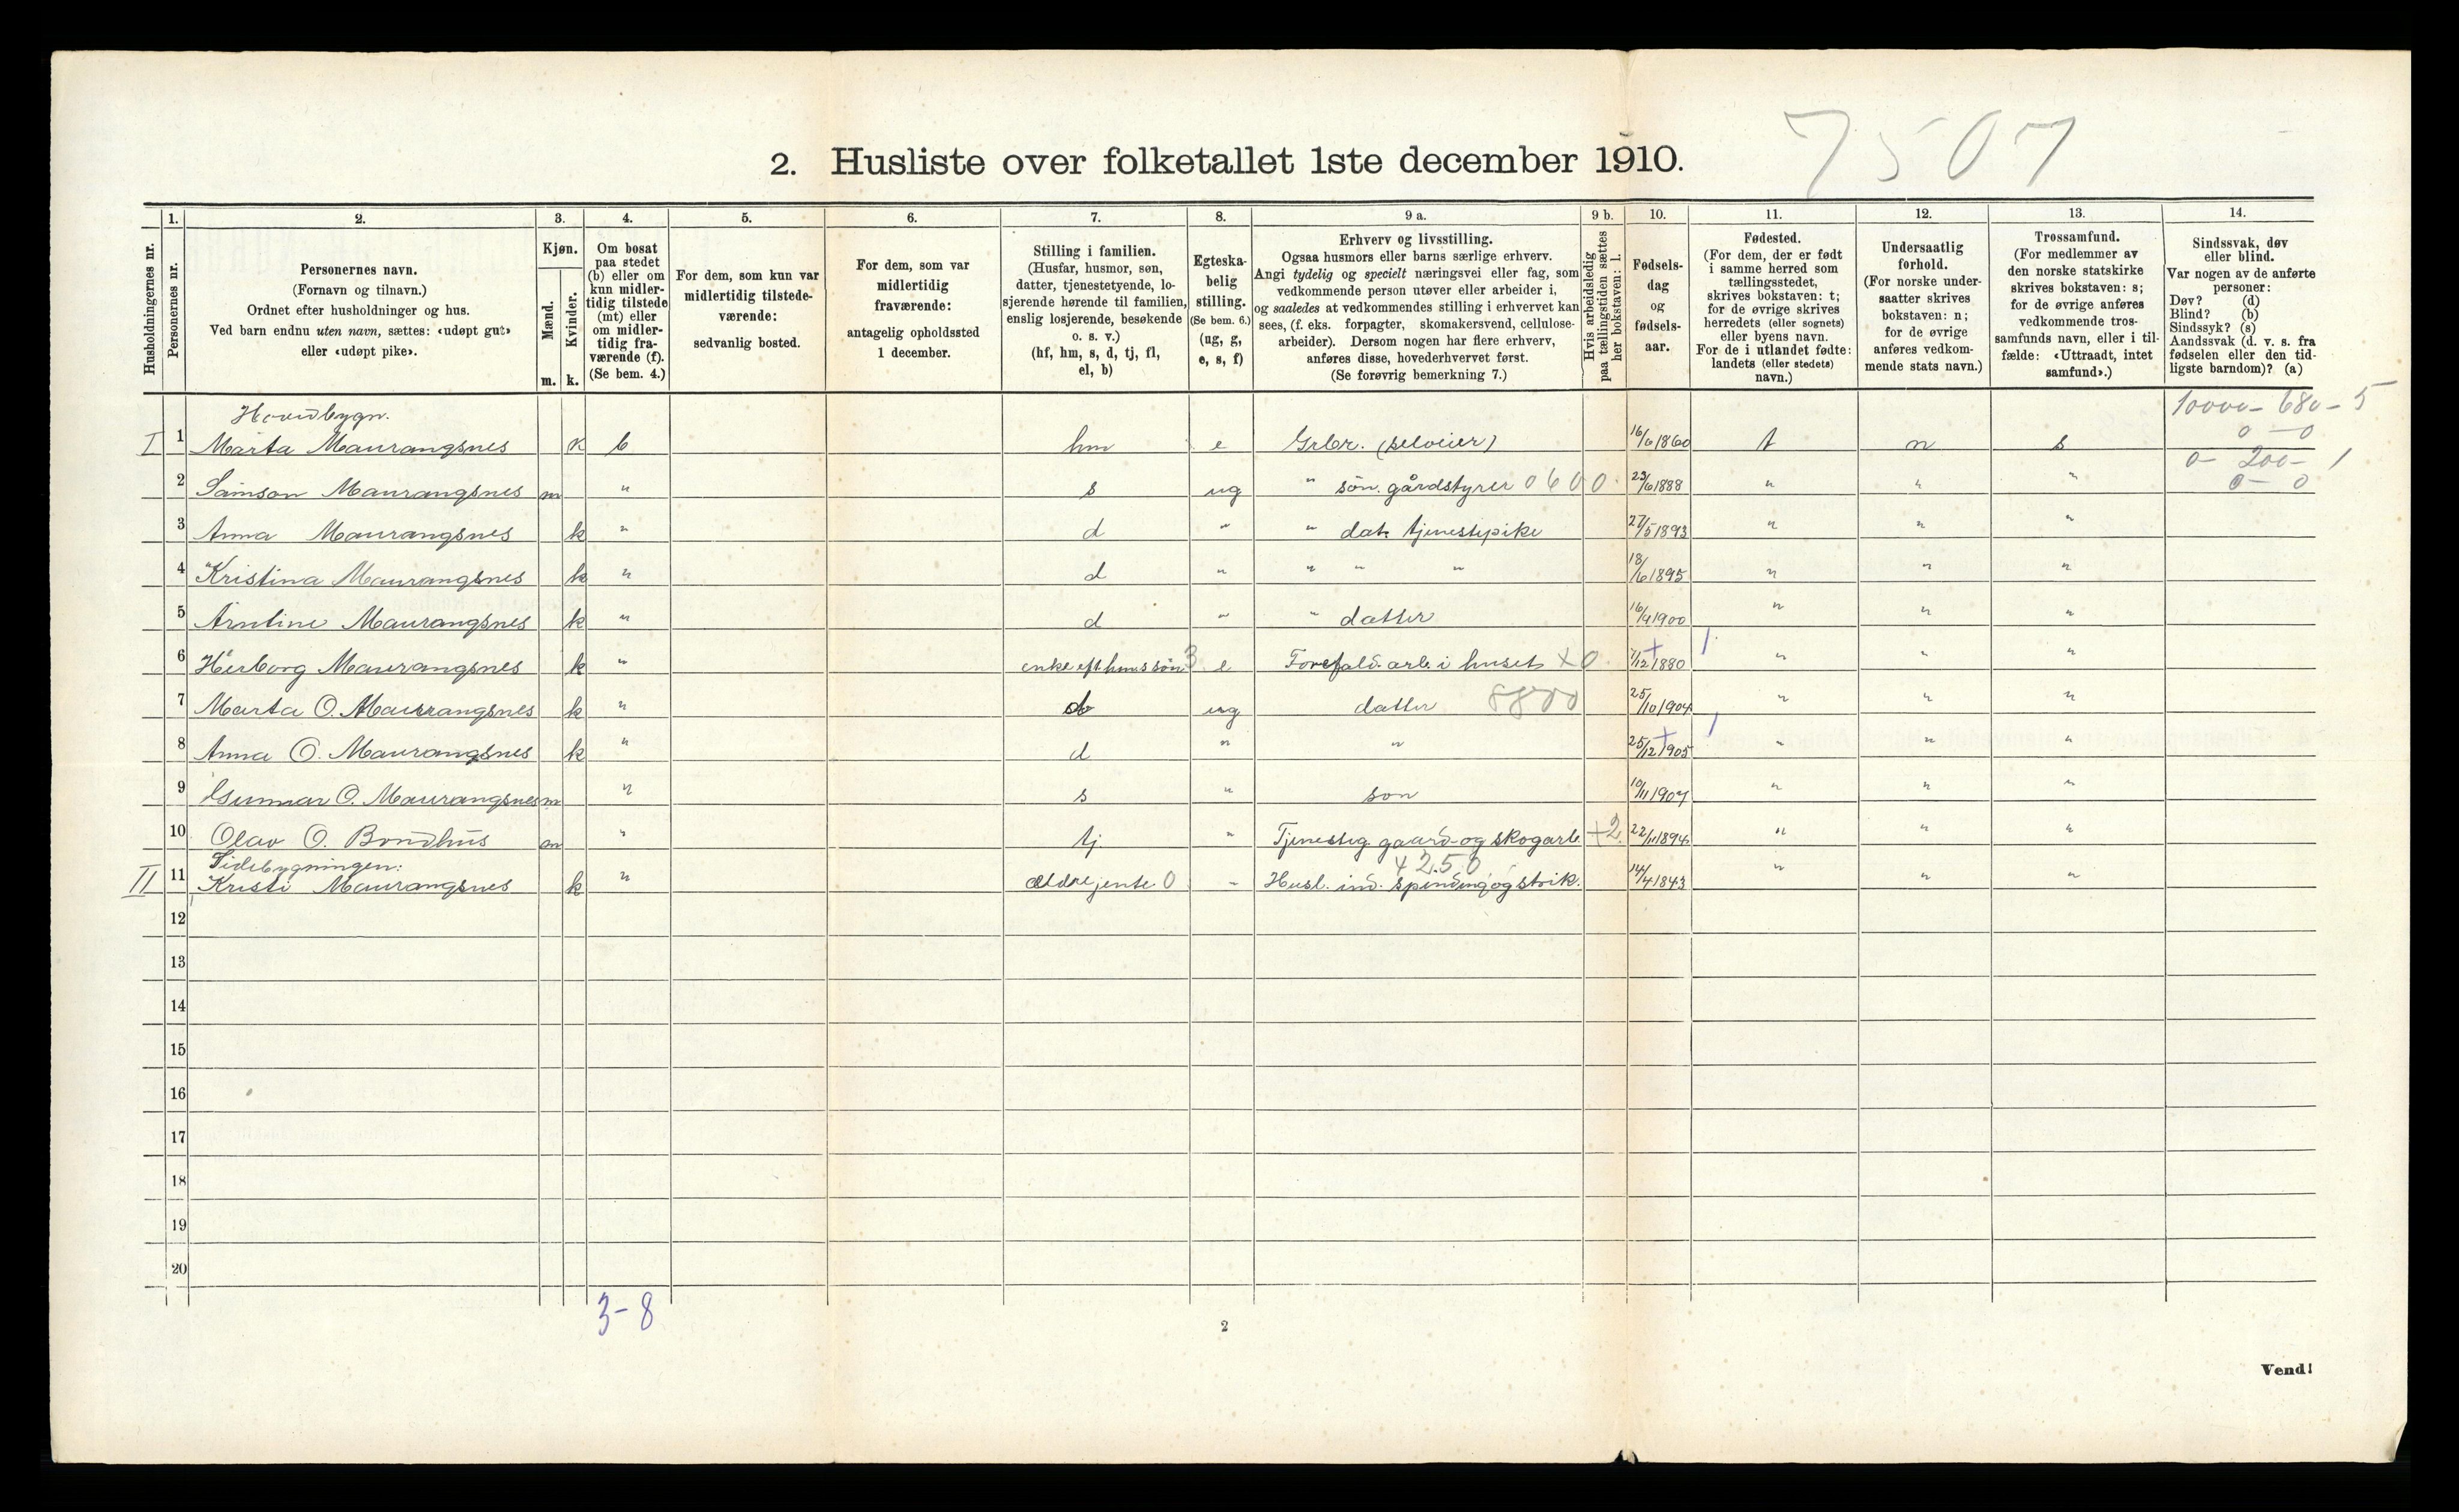 7507
2. Husliste over folketallet 1ste december 1910.
Husholdningernes nr.
1.
Personernes nr.
2.
Personernes navn.
(Fornavn og tilnavn.)
Ordnet efter husholdninger og hus.
Ved barn endnu uten navn, sættes: «udøpt gut»
eller «udøpt pike».
3.
Kjøn.
Mænd.
Kvinder.
m. k.
4.
Om bosat
paa stedet
(b) eller om
kun midler-
tidig tilstede
(mt) eller
om midler-
tidig fra-
værende (f).
(Se bem. 4.)
5.
For dem, som kun var
midlertidig tilstede-
værende:
sedvanlig bosted.
6.
For dem, som var
midlertidig
fraværende:
antagelig opholdssted
1 december.
7.
Stilling i familien.
(Husfar, husmor, søn,
datter, tjenestetyende, lo-
sjerende hørende til familien,
enslig losjerende, besøkende
o. s. v.)
(hf, hm, s, d, tj, fl,
el, b)
8.
Egteska-
belig
stilling.
(Se bem. 6.)
(ug, g,
e, s, f)
9 a.
Erhverv og livsstilling.
Ogsaa husmors eller barns særlige erhverv.
Angi tydelig og specielt næringsvei eller fag, som
vedkommende person utøver eller arbeider i,
og saaledes at vedkommendes stilling i erhvervet kan
sees, (f. eks. forpagter, skomakersvend, cellulose-
arbeider). Dersom nogen har flere erhverv,
anføres disse, hovederhvervet først.
(Se forøvrig bemerkning 7.)
9 b.
Hvis arbeidsledig
paa tællingstiden sættes
her bokstaven: l.
10.
Fødsels-
dag
og
fødsels-
aar.
11.
Fødested.
(For dem, der er født
i samme herred som
tællingsstedet,
skrives bokstaven: t;
for de øvrige skrives
herredets (eller sognets)
eller byens navn.
For de i utlandet fødte:
landets (eller stedets)
navn.)
12.
Undersaatlig
forhold.
(For norske under-
saatter skrives
bokstaven: n;
for de øvrige
anføres vedkom-
mende stats navn.)
13.
Trossamfund.
(For medlemmer av
den norske statskirke
skrives bokstaven: s;
for de øvrige anføres
vedkommende tros-
samfunds navn, eller i til-
fælde: «Uttraadt, intet
samfund».)
14.
Sindssvak, døv
eller blind.
Var nogen av de anførte
personer:
Døv? (d)
Blind? (b)
Sindssyk? (s)
Aandssvak (d. v. s. fra
fødselen eller den tid-
ligste barndom)? (a)
10000 - 680 - 5
0 - 0
Hovedbygn.
I 1 Marta Maurangsnes k b hm e Grbr. (selveier) 16/6 1860 t n s
0 - 200 - 1
0 - 0
2 Samson Maurangsnes m " s ug " søn. gårdstyrer 0600 23/6 1888 " " "
3 Anna Maurangsnes k " d " " dat. tjenestepike 27/5 1893 " " "
4 Kristina Maurangsnes k " d " " " " 18/6 1895 " " "
5 Arntine Maurangsnes k " d " " datter 16/4 1900 " " "
6 Herborg Maurangsnes k " enke eft. hm.s søn 3 e Forefald. arb. i huset x0 1/12 1880 " " "
7 Marta O. Maurangsnes k " d ug datter 8800 25/10 1904 " " "
8 Anna O. Maurangsnes k " d " " 25/12 1905 " " "
9 Gunnar O. Maurangsnes m " s " son 10/11 1907 " " "
10 Olav O. Bondhus m " tj " Tjenesteg. gaard- og skogarb. +2 22/11 1894 " " "
Sidebygningen:
4250
II 11 Kristi Maurangsnes k " ældre jente 0 " Husl. ind. spinding og strik. 14/4 1843 " " "
12
13
14
15
16
17
18
19
20
3-8
2
Vend!